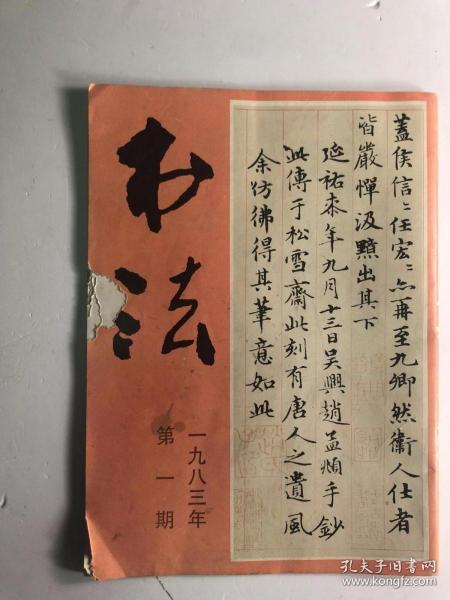 书法
一九八三年
第一期
蓋侯信〻任宏〻亦再至九卿然衛人仕者
皆嚴憚汲黯出其下
延祐柒年九月十三日吳興趙孟頫手鈔
此傳于松雪齋此刻有唐人之遺風
余仿彿得其筆意如此
孔夫子旧书网
www.kongfz.com